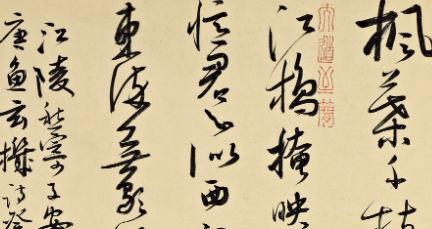 楓葉千枝
江橋掩映
憶君心似西江
東流無歇
江陵愁寄子安
唐魚玄機詩癸